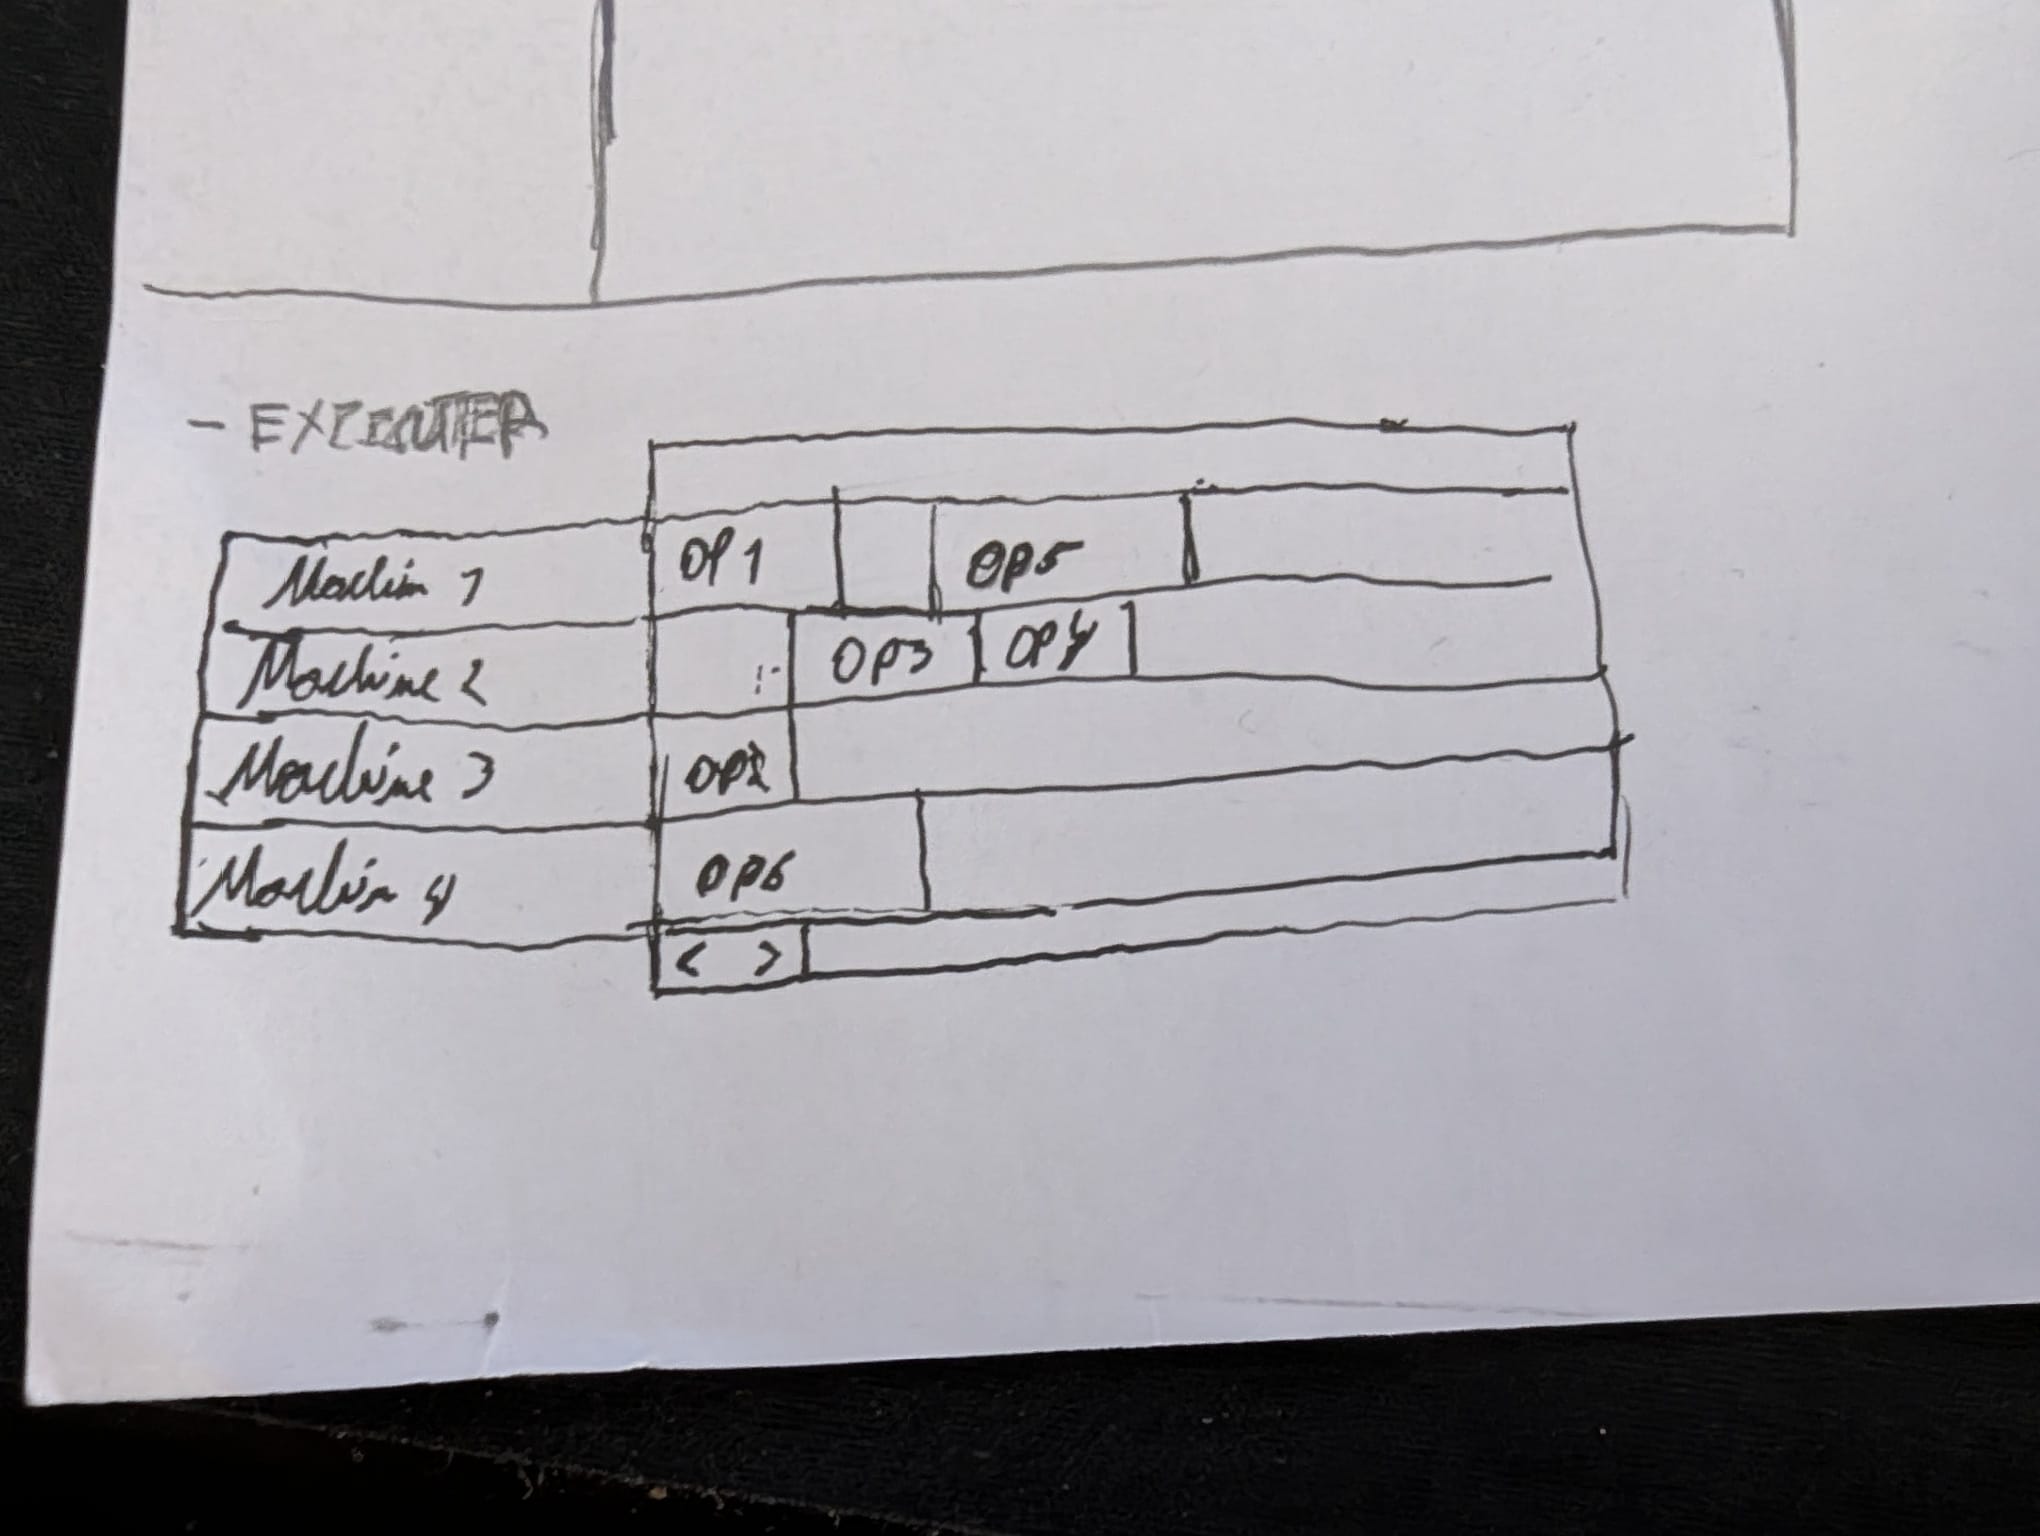 - EXECUTER
Machin 1 OP1 OP5
Machine 2 OP3 OP4
Machine 3 OP2
Machin 4 OP6
< >